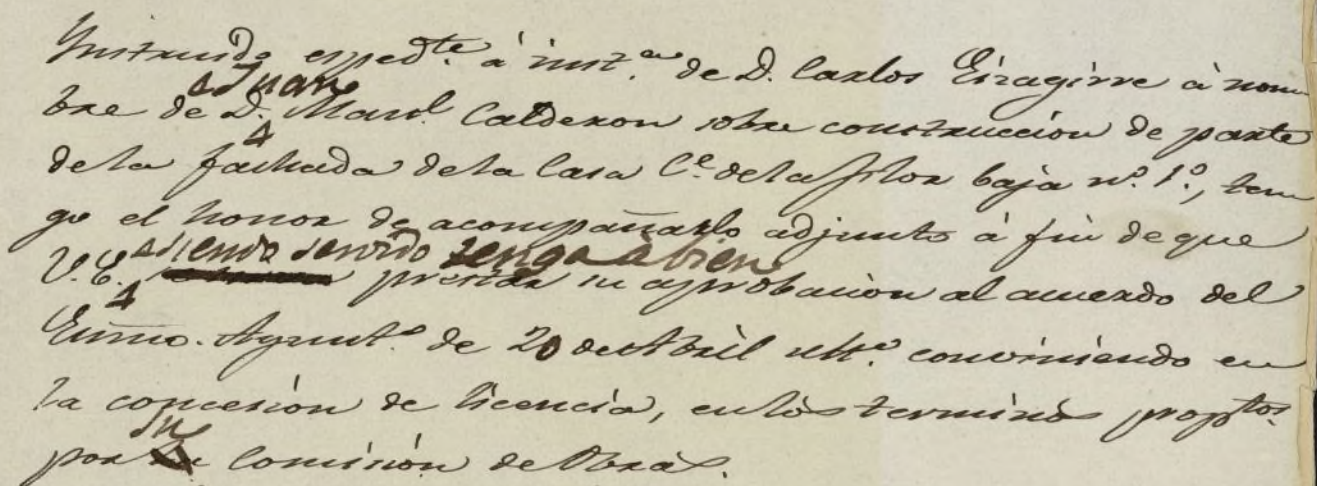 Instruido exped.te á inst.a de D. Carlos Eizagirre á nom
bre de D. Juan Man.l Calderon sobre construccion de parte
de la fachada de la Casa C.e de la flor baja n.o 1.o, ten
go el honor de acompañarlo adjunto á fin de que
V.E. siendo servido tenga á bien prestar su aprobacion al acuerdo del
Exmo. Ayunt.o de 20 de Abril ult.o conviniendo en
la concesion de licencia, en los terminos prop.tos
por su Comision de Obras.